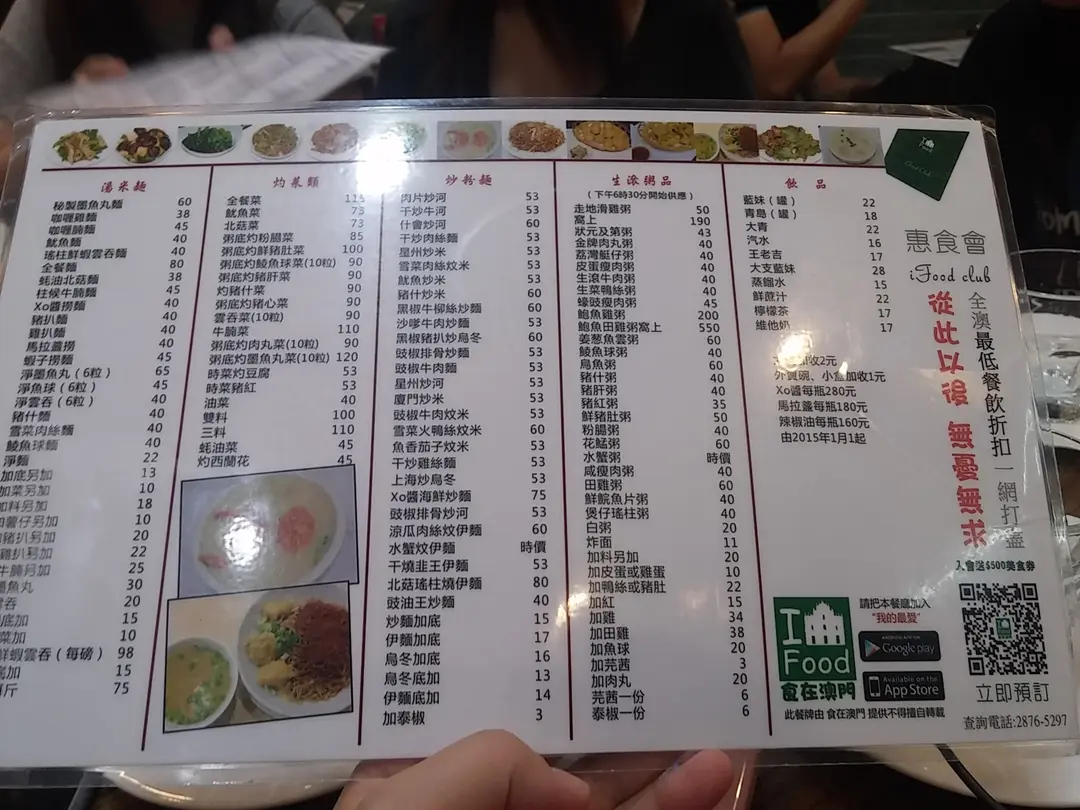 湯米麵
秘製墨魚丸麵 60
咖喱雞麵 38
咖喱腩麵 45
魷魚麵 40
瑤柱鮮蝦雲吞麵 40
全餐麵 80
蚝油北菇麵 38
柱候牛腩麵 45
Xo醬撈麵 40
豬扒麵 40
雞扒麵 40
馬拉盞撈 40
蝦子撈麵 45
淨墨魚丸(6粒) 65
淨魚球(6粒) 45
淨雲吞(6粒) 40
豬什麵 40
雪菜肉絲麵 40
鯪魚球麵 40
淨麵 22
加底另加 13
加菜另加 10
加料另加 18
薯仔另加 10
豬扒另加 20
雞扒另加 22
牛腩另加 25
魚丸 30
雲吞 20
底加 15
菜加 10
鮮蝦雲吞(每磅) 98
加 15
斤 75
灼菜類
全餐菜 115
魷魚菜 73
北菇菜 73
粥底灼粉腸菜 85
粥底灼鮮豬肚菜 100
粥底灼鯪魚球菜(10粒) 90
粥底灼豬肝菜 90
灼豬什菜 90
粥底灼豬心菜 90
雲吞菜(10粒) 90
牛腩菜 110
粥底灼肉丸菜(10粒) 90
粥底灼墨魚丸菜(10粒) 120
時菜灼豆腐 53
時菜豬紅 53
油菜 40
雙料 100
三料 110
蚝油菜 45
灼西蘭花 45
炒粉麵
肉片炒河 53
干炒牛河 53
什會炒河 60
干炒肉絲麵 53
星州炒米 53
雪菜肉絲炆米 53
魷魚炒米 60
豬什炒米 60
黑椒牛柳絲炒麵 60
沙嗲牛肉炒麵 53
黑椒豬扒炒烏冬 60
豉椒排骨炒麵 53
豉椒牛肉麵 53
星州炒河 53
廈門炒米 53
豉椒牛肉炆米 53
雪菜火鴨絲炆米 60
魚香茄子炆米 53
干炒雞絲麵 53
上海炒烏冬 53
Xo醬海鮮炒麵 75
豉椒排骨炒河 53
涼瓜肉絲炆伊麵 60
水蟹炆伊麵 時價
干燒韭王伊麵 53
北菇瑤柱燒伊麵 80
豉油王炒麵 40
炒麵加底 15
伊麵加底 17
烏冬加底 16
烏冬底加 13
伊麵底加 14
加泰椒 3
生滾粥品
(下午6時30分開始供應)
走地滑雞粥 50
窩上 190
狀元及第粥 43
金牌肉丸粥 40
荔灣艇仔粥 40
皮蛋瘦肉粥 40
生滾牛肉粥 40
生菜鴨絲粥 40
蠔豉瘦肉粥 45
鮑魚雞粥 200
鮑魚田雞粥窩上 550
姜葱魚雲粥 60
鯪魚球粥 40
烏魚粥 60
豬什粥 40
豬肝粥 40
豬紅粥 35
鮮豬肚粥 50
粉腸粥 40
花鰛粥 60
水蟹粥 時價
咸瘦肉粥 40
田雞粥 60
鮮鯇魚片粥 40
煲仔瑤柱粥 40
白粥 20
炸面 11
加料另加 20
加皮蛋或雞蛋 10
加鴨絲或豬肚 22
加紅 15
加雞 34
加田雞 38
加魚球 20
加芫茜 3
加肉丸 20
芫茜一份 6
泰椒一份 6
飲品
藍妹(罐) 22
青島(罐) 18
大青 22
汽水 16
王老吉 17
大支藍妹 28
蒸餾水 15
鮮蔗汁 22
檸檬茶 17
維他奶 17
加收2元
外賣碗、小盒加收1元
Xo醬每瓶280元
馬拉盞每瓶180元
辣椒油每瓶160元
由2015年1月1起
惠食會
iFood club
從此以後 無憂無求
全澳最低餐飲折扣 一網打盡
入會送$500美食券
I Food
食在澳門
請把本餐廳加入
"我的最愛"
ANDROID APP ON
Google play
Available on the
App Store
立即預訂
此餐牌由 食在澳門 提供不得擅自轉載
查詢電話:2876-5297